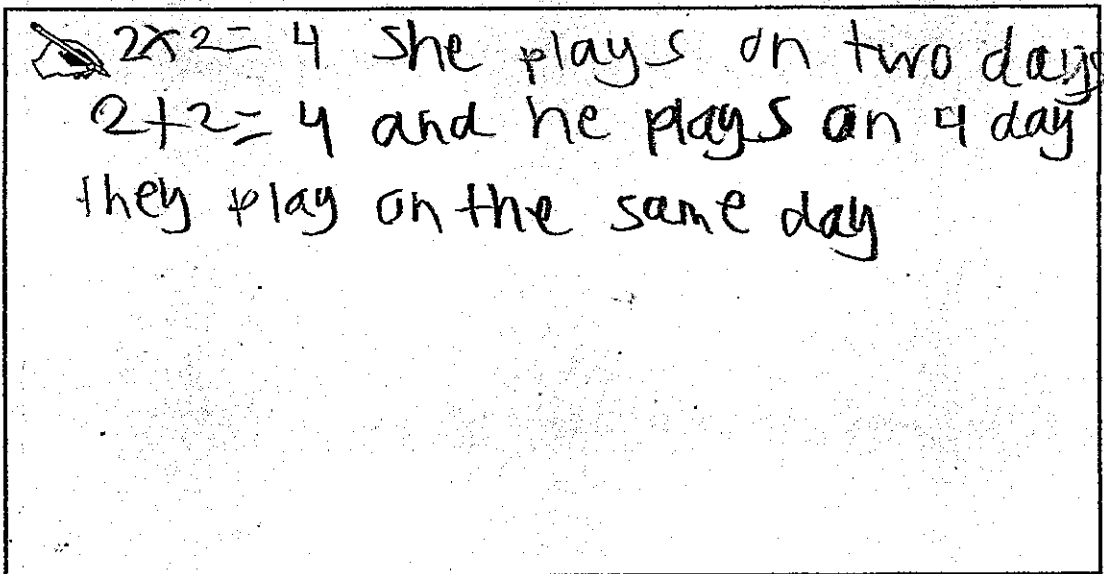 2x2=4 she plays on two days
2+2=4 and he plays on 4 day
they play on the same day